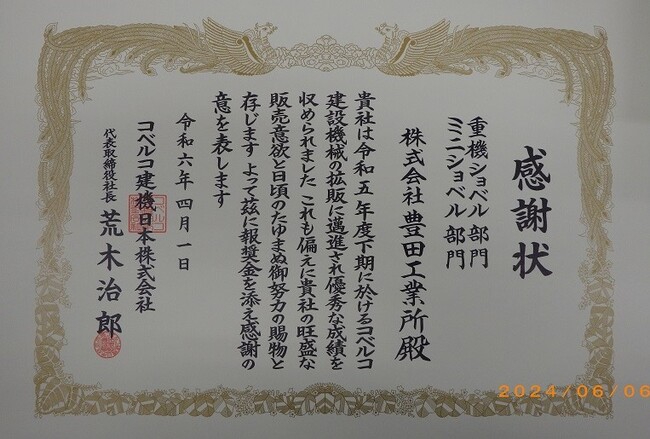 感謝状
重機ショベル部門
ミニショベル部門
株式会社 豊田工業所殿
貴社は令和五年度下期に於けるコベルコ
建設機械の拡販に邁進され優秀な成績を
収められました これも偏えに貴社の旺盛な
販売意欲と日頃のたゆまぬ御努力の賜物と
存じます よって茲に報奨金を添え感謝の
意を表します
令和六年四月一日
コベルコ建機日本株式会社
代表取締役社長 荒木治郎
2024/06/06